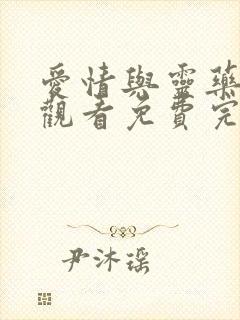 愛情與靈藥
觀看免費完
尹沐瑶